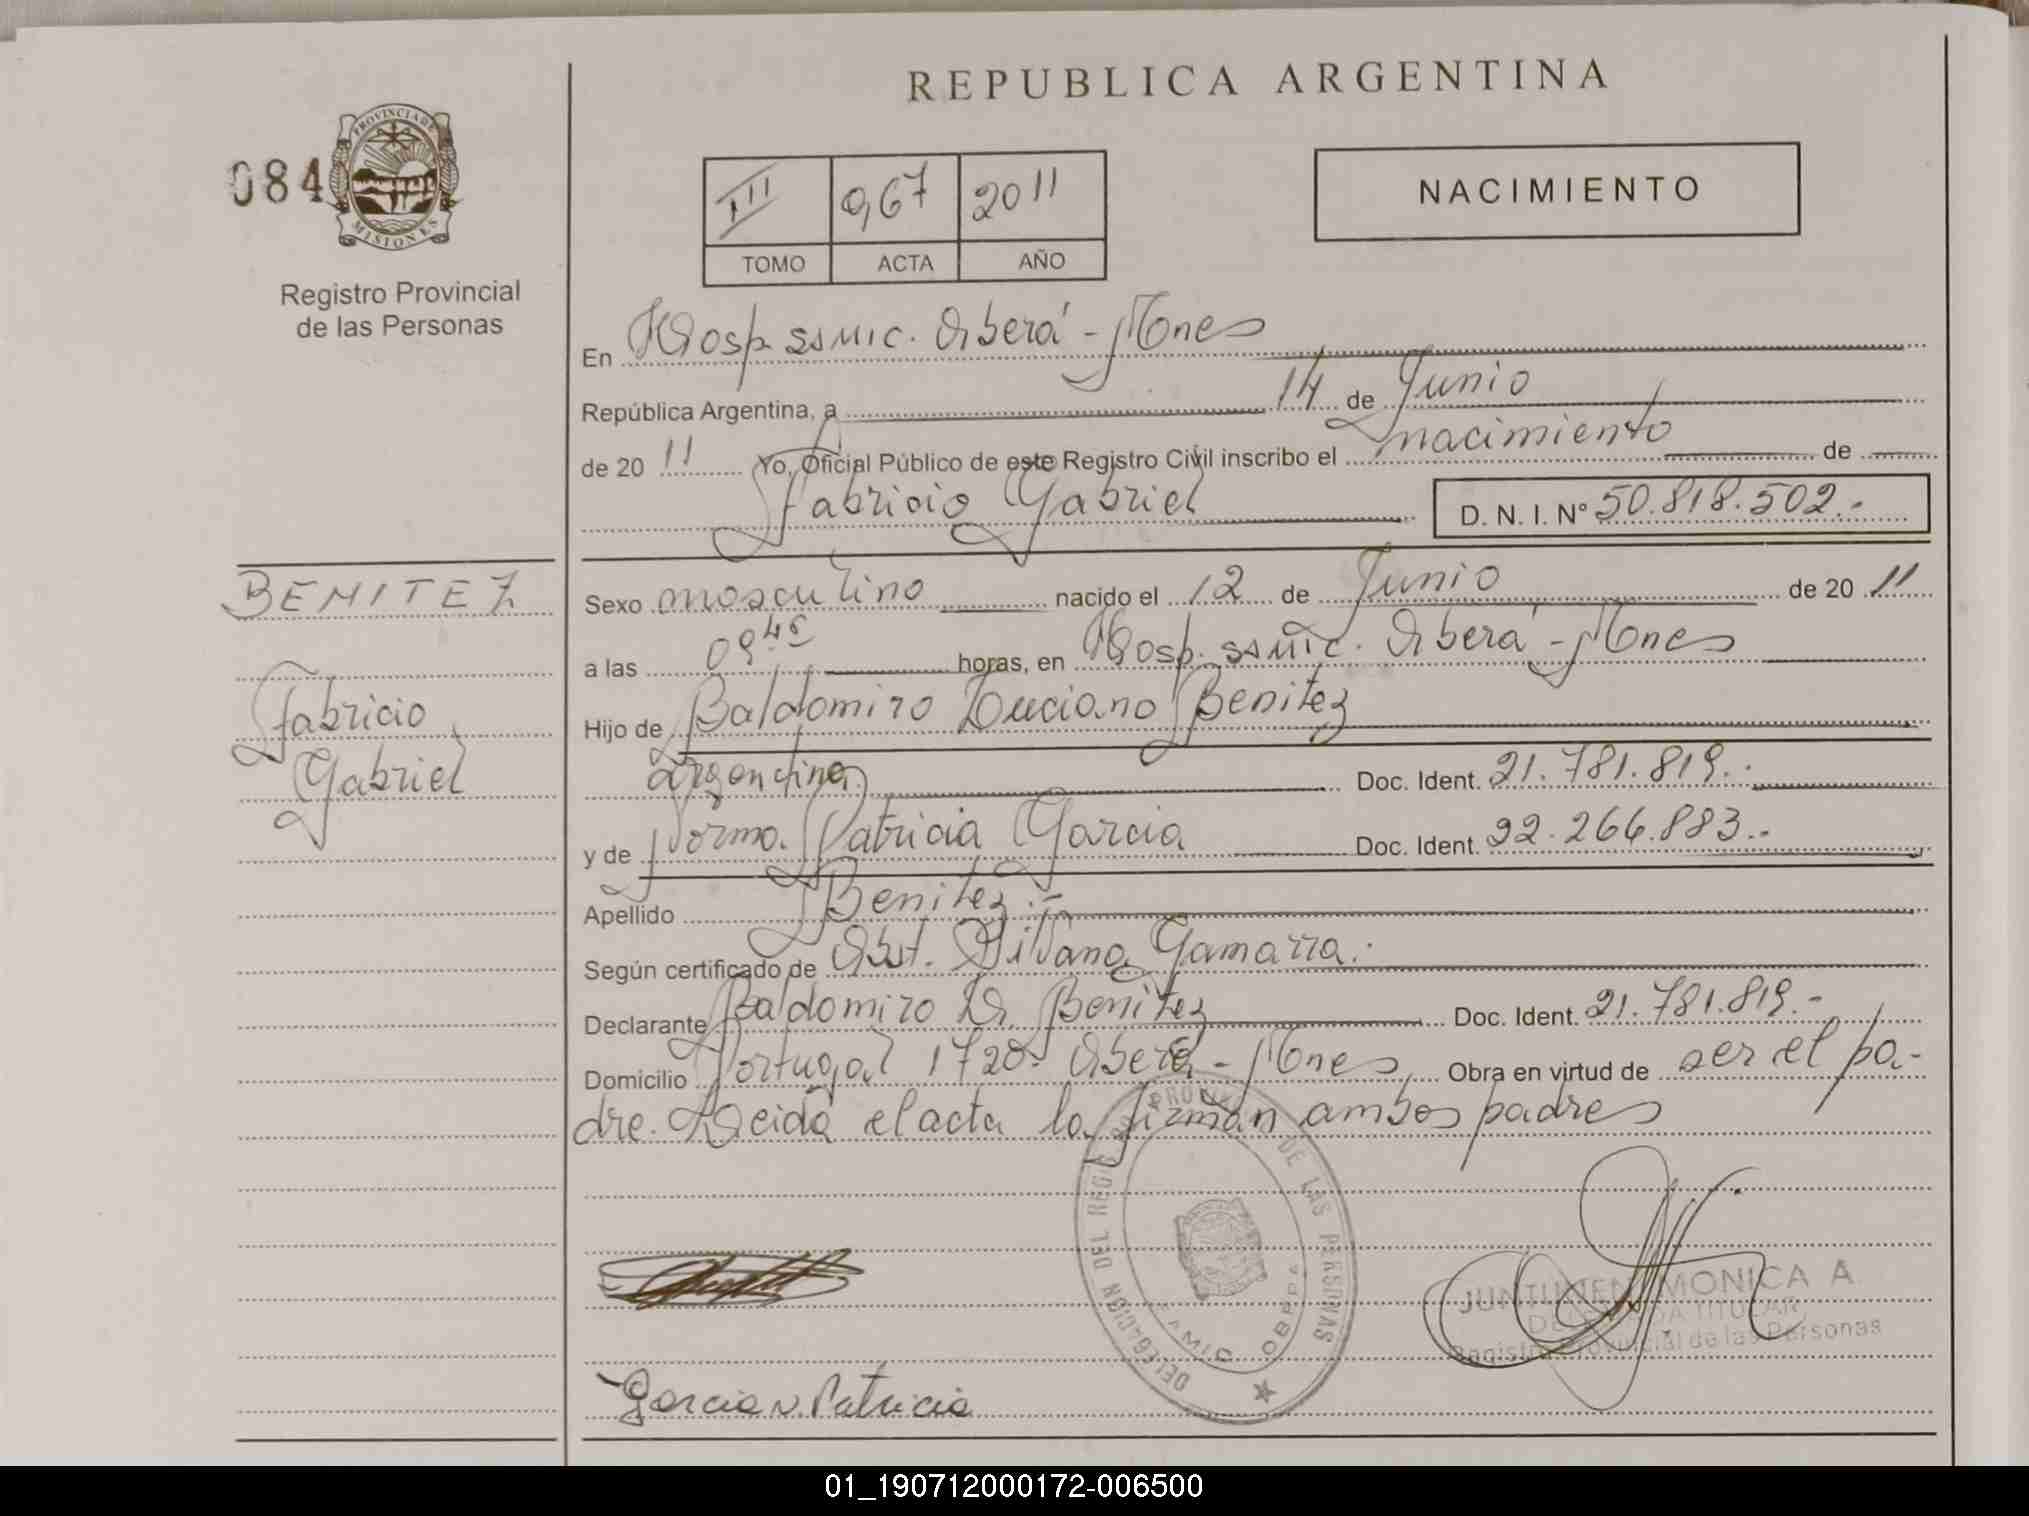 REPUBLICA ARGENTINA
084
PROVINCIA DE
MISIONES
Registro Provincial
de las Personas
III 967 2011
TOMO ACTA AÑO
NACIMIENTO
En Hosp. SSMIC. Oberá - Mones
República Argentina, a 14 de Junio
de 20 11 Yo, Oficial Público de este Registro Civil inscribo el nacimiento de
Fabricio Gabriel D. N. I. Nº 50.818.502.-
BENITEZ
Fabricio
Gabriel
Sexo masculino nacido el 12 de Junio de 20 11
a las 09 45 horas, en Hosp. SSMIC. Oberá - Mones
Hijo de Baldomiro Luciano Benitez
argentina Doc. Ident. 21.781.819.-
y de Norma Patricia Garcia Doc. Ident. 22.266.883.-
Apellido Benitez.-
Según certificado de Obst. Silvana Gamarra.
Declarante Baldomiro L. Benitez Doc. Ident. 21.781.819.-
Domicilio Portugal 1720. Oberá - Mones Obra en virtud de ser el pa-
dre. Leida el acta la firman ambos padres
DELEGACION DEL REGISTRO PROVINCIAL DE LAS PERSONAS
OBERA
JUNTUNEN MONICA A
DELEGADA TITULAR
Registro Provincial de las Personas
Garcia N. Patricia
01_190712000172-006500